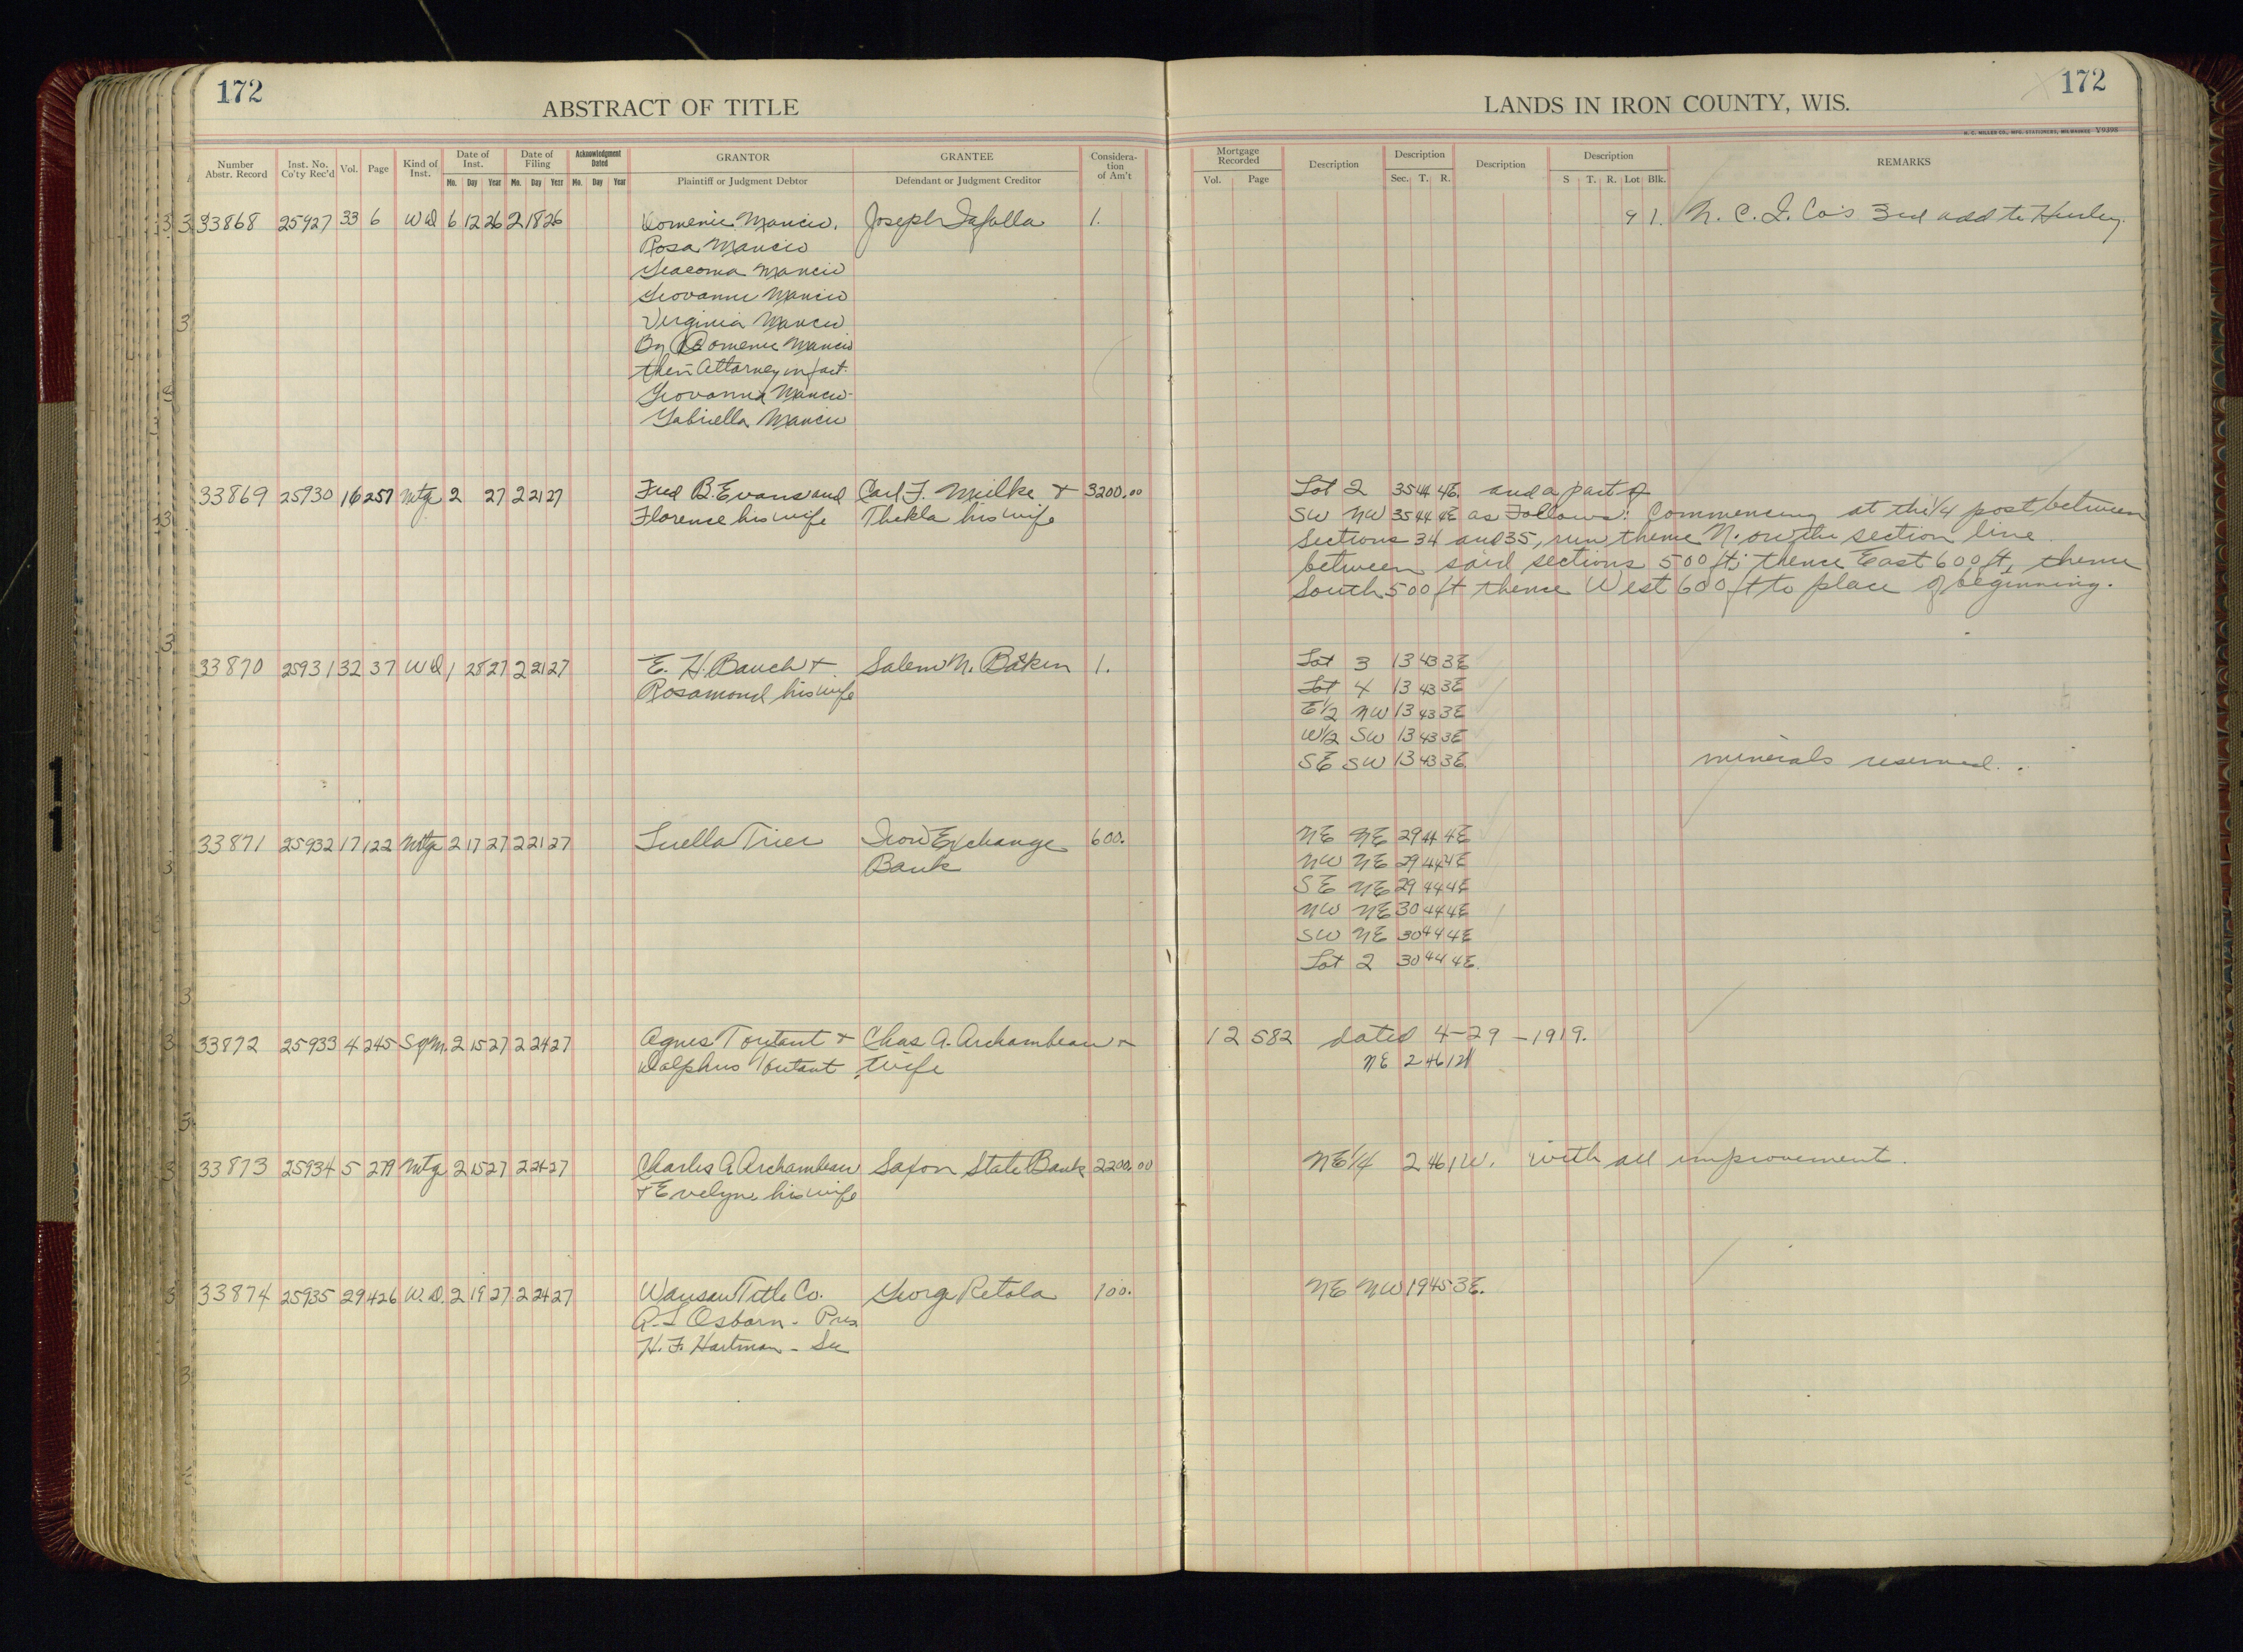 172
ABSTRACT OF TITLE
LANDS IN IRON COUNTY, WIS.
172
H. C. MILLER CO., MFG. STATIONERS, MILWAUKEE V9398
Number Abstr. Record
Inst. No. Co'ty Rec'd
Vol.
Page
Kind of Inst.
Date of Inst.
Mo. Day Year
Date of Filing
Mo. Day Year
Acknowledgment Dated
Mo. Day Year
GRANTOR
Plaintiff or Judgment Debtor
GRANTEE
Defendant or Judgment Creditor
Considera-tion of Am't
Mortgage Recorded
Vol. Page
Description
Description
Sec. T. R.
Description
Description
S T. R. Lot Blk.
REMARKS
33868 25927 33 6 WD 6 12 26 2 18 26 Domenic Mancio, Joseph Iafolla 1. 9 1. N. C. I. Co's 3rd add to Hurley.
Rosa Mancio
Giacoma Mancio
Giovanni Mancio
Virginia Mancio
By Domenic Mancio
their Attorney in fact.
Giovanna Mancio
Gabriella Mancio
33869 25930 16 257 Mtg 2 27 2 21 27 Fred B. Evans and Carl F. Mielke & 3200.00 Lot 2 35 44 4E. and a part of
Florence his wife Thekla his wife SW NW 35 44 4E as Follows: Commencing at the 1/4 post between
Sections 34 and 35, run thence N. on the section line
between said sections 500 ft; thence East 600 ft, thence
South 500 ft thence West 600 ft to place of beginning.
33870 25931 32 37 WD 1 28 27 2 21 27 E. H. Bauch & Salem N. Batkin 1. Lot 3 13 43 3E
Rosamond his wife Lot 4 13 43 3E
E1/2 NW 13 43 3E
W1/2 SW 13 43 3E
SE SW 13 43 3E. minerals reserved.
33871 25932 17 122 Mtg 2 17 27 2 21 27 Luella Trier Iron Exchange 600. NE NE 29 44 4E
Bank NW NE 29 44 4E
SE NE 29 44 4E
NW NE 30 44 4E
SW NE 30 44 4E
Lot 2 30 44 4E.
33872 25933 4 245 Sq M. 2 15 27 2 24 27 Agnes Toutant & Chas A. Archambeau & 12 582 dated 4-29-1919.
Dolphus Toutant wife NE 2 46 1W
33873 25934 5 279 Mtg 2 15 27 2 24 27 Charles A. Archambeau Saxon State Bank 2200.00 NE 1/4 2 46 1W. with all improvement.
& Evelyne his wife
33874 25935 29 426 W. D. 2 19 27 2 24 27 Wausau Title Co. George Retola 100. NE NW 19 45 3E.
A. L Osborn - Pres
H. F. Hartman - Sec